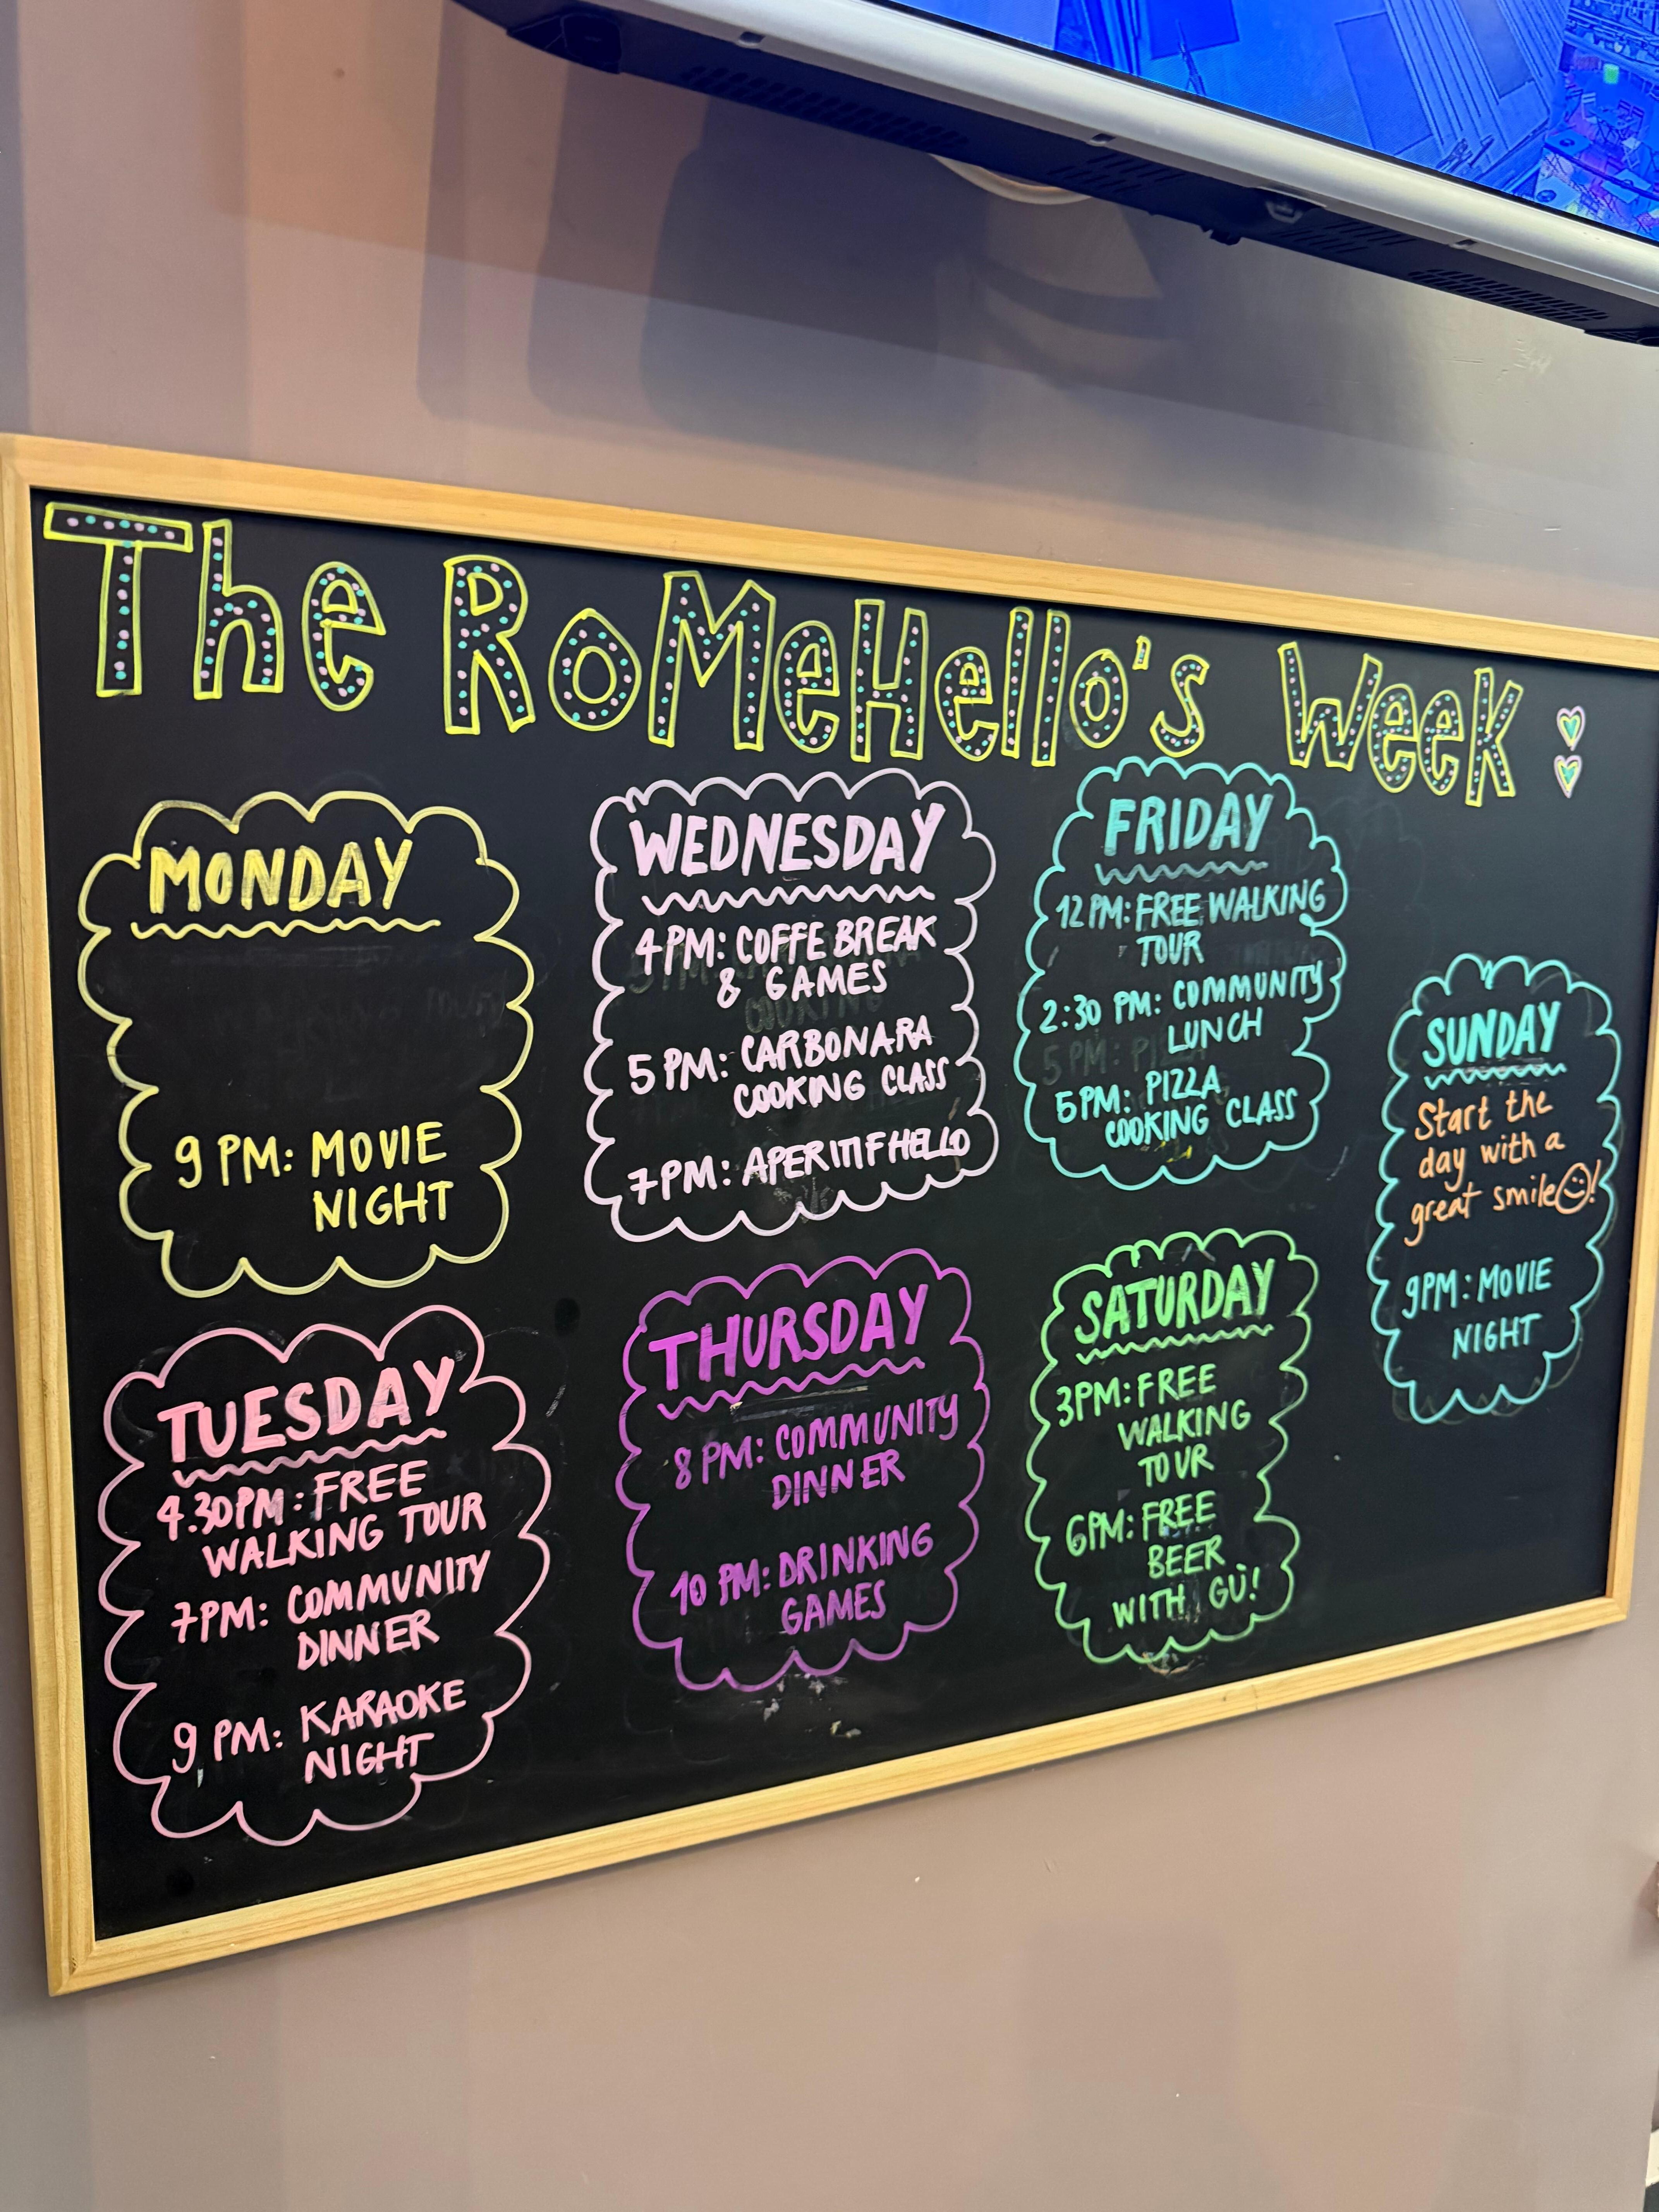 The RoMeHello's Week:
MONDAY
9 PM: MOVIE
NIGHT
TUESDAY
4.30PM: FREE
WALKING TOUR
7PM: COMMUNITY
DINNER
9 PM: KARAOKE
NIGHT
WEDNESDAY
4PM: COFFE BREAK
& GAMES
5 PM: CARBONARA
COOKING CLASS
7PM: APERITIFHELLO
THURSDAY
8 PM: COMMUNITY
DINNER
10 PM: DRINKING
GAMES
FRIDAY
12 PM: FREE WALKING
TOUR
2:30 PM: COMMUNITY
LUNCH
5PM: PIZZA
COOKING CLASS
SATURDAY
3PM: FREE
WALKING
TOUR
6PM: FREE
BEER
WITH GÙ!
SUNDAY
Start the
day with a
great smile☺!
9PM: MOVIE
NIGHT